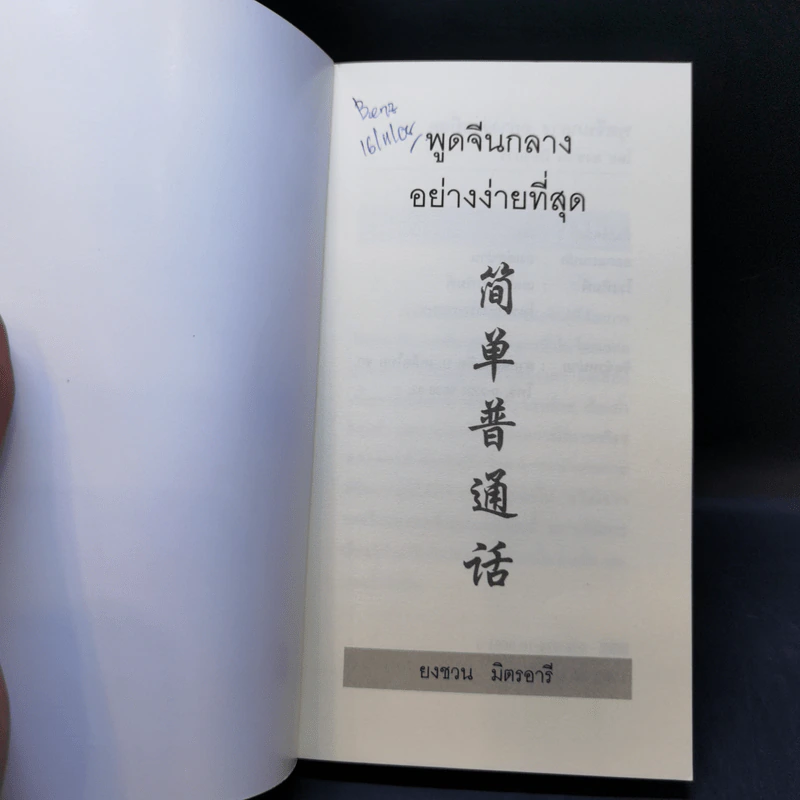 Benz
16/11/08
พูดจีนกลาง
อย่างง่ายที่สุด
简
单
普
通
话
ยงชวน มิตรอารี